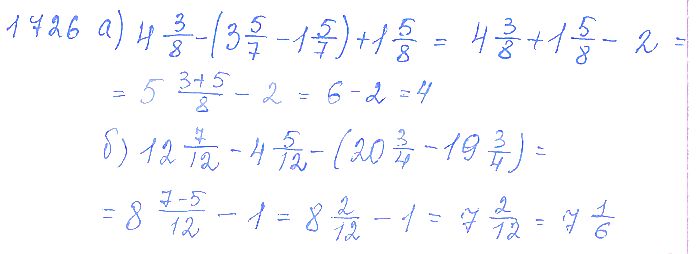 1726 а) 4 3/8 - (3 5/7 - 1 5/7) + 1 5/8 = 4 3/8 + 1 5/8 - 2 =
= 5 (3+5)/8 - 2 = 6 - 2 = 4
б) 12 7/12 - 4 5/12 - (20 3/4 - 19 3/4) =
= 8 (7-5)/12 - 1 = 8 2/12 - 1 = 7 2/12 = 7 1/6